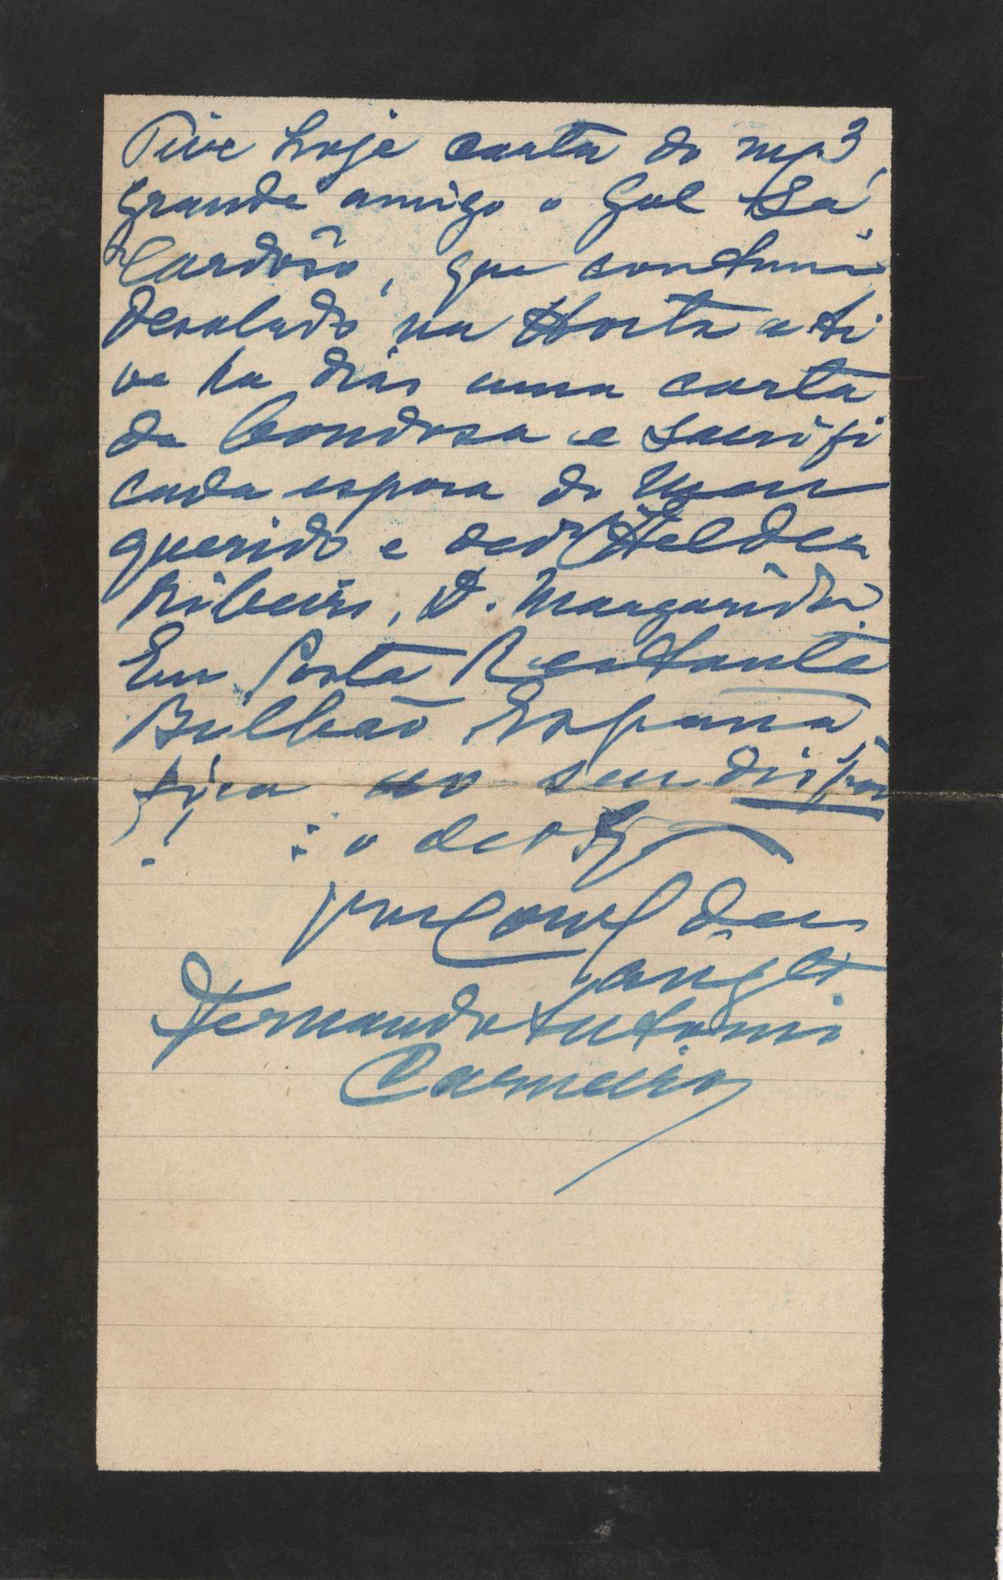 Tive hoje carta do meu
grande amigo o Gal Sá
Cardôso, que continua
desolado na Horta e ti
ve ha dias uma carta
da bondosa e sacrifi
cada esposa do meu
querido e dedº Helder
Ribeiro, D. Margarida.
Em Posta Restante
Bilbáo Espana
fica ao seu dispôr
: o
de
Fernando Antonio
Carneiro